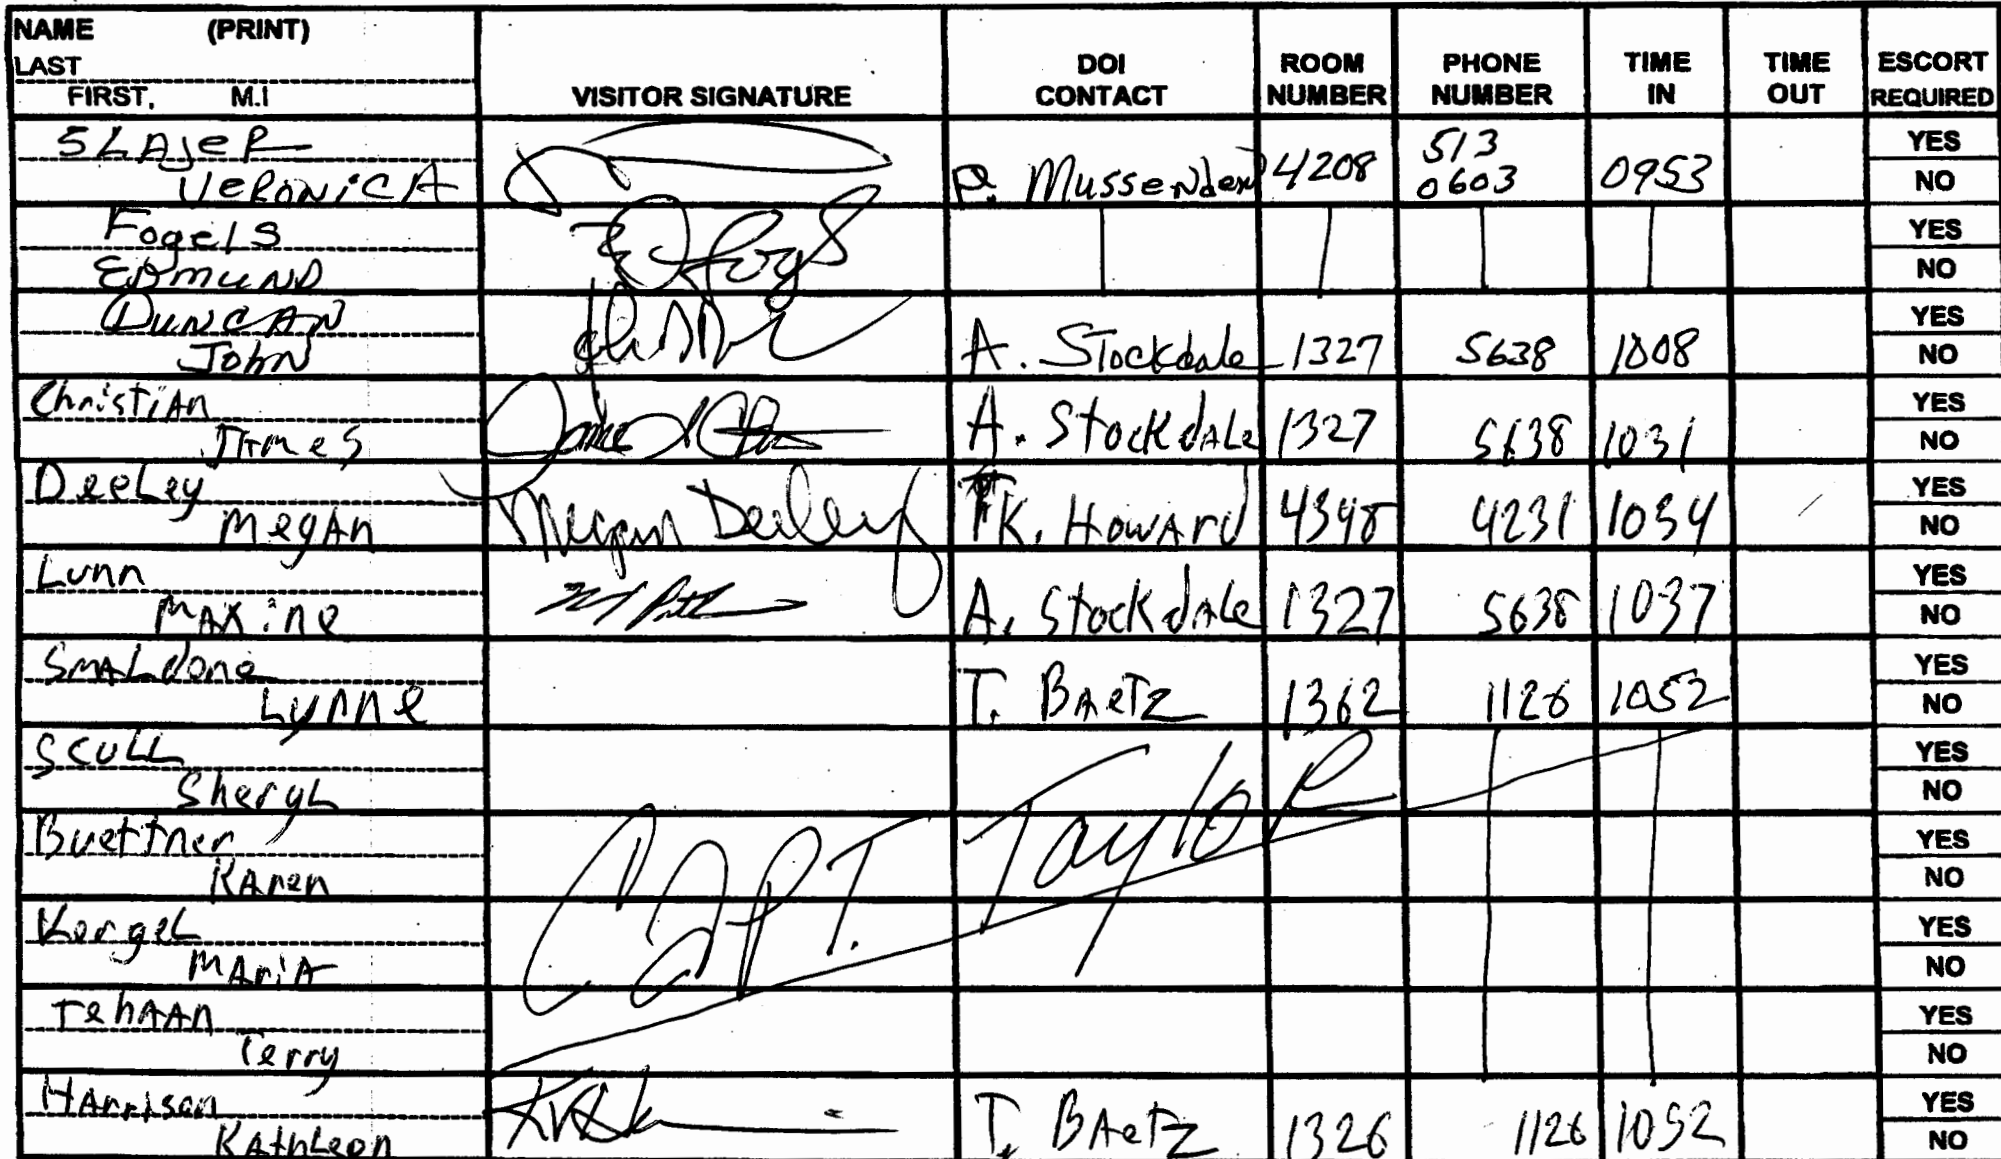 NAME (PRINT)
LAST
FIRST, M.I
VISITOR SIGNATURE
DOI CONTACT
ROOM NUMBER
PHONE NUMBER
TIME IN
TIME OUT
ESCORT REQUIRED
SLAJER
VERONICA
P. Mussenden 4208 513 0603 0953 YES NO
Fogels
EDMUND
YES NO
DUNCAN
JOHN
A. Stockdale 1327 5638 1008 YES NO
Christian
James
A. Stockdale 1327 5638 1031 YES NO
Deeley
Megan
Megan Deeley
K. Howard 4348 4231 1034 YES NO
Lunn
Maxine
A. Stockdale 1327 5638 1037 YES NO
Smaldone
Lynne
T. Baetz 1362 1126 1052 YES NO
Scull
Sheryl
YES NO
Buettner
Karen
YES NO
CAPT. Taylor
Kergel
Maria
YES NO
Tehaan
Terry
YES NO
Harrison
Kathleen
T. Baetz 1326 1126 1052 YES NO